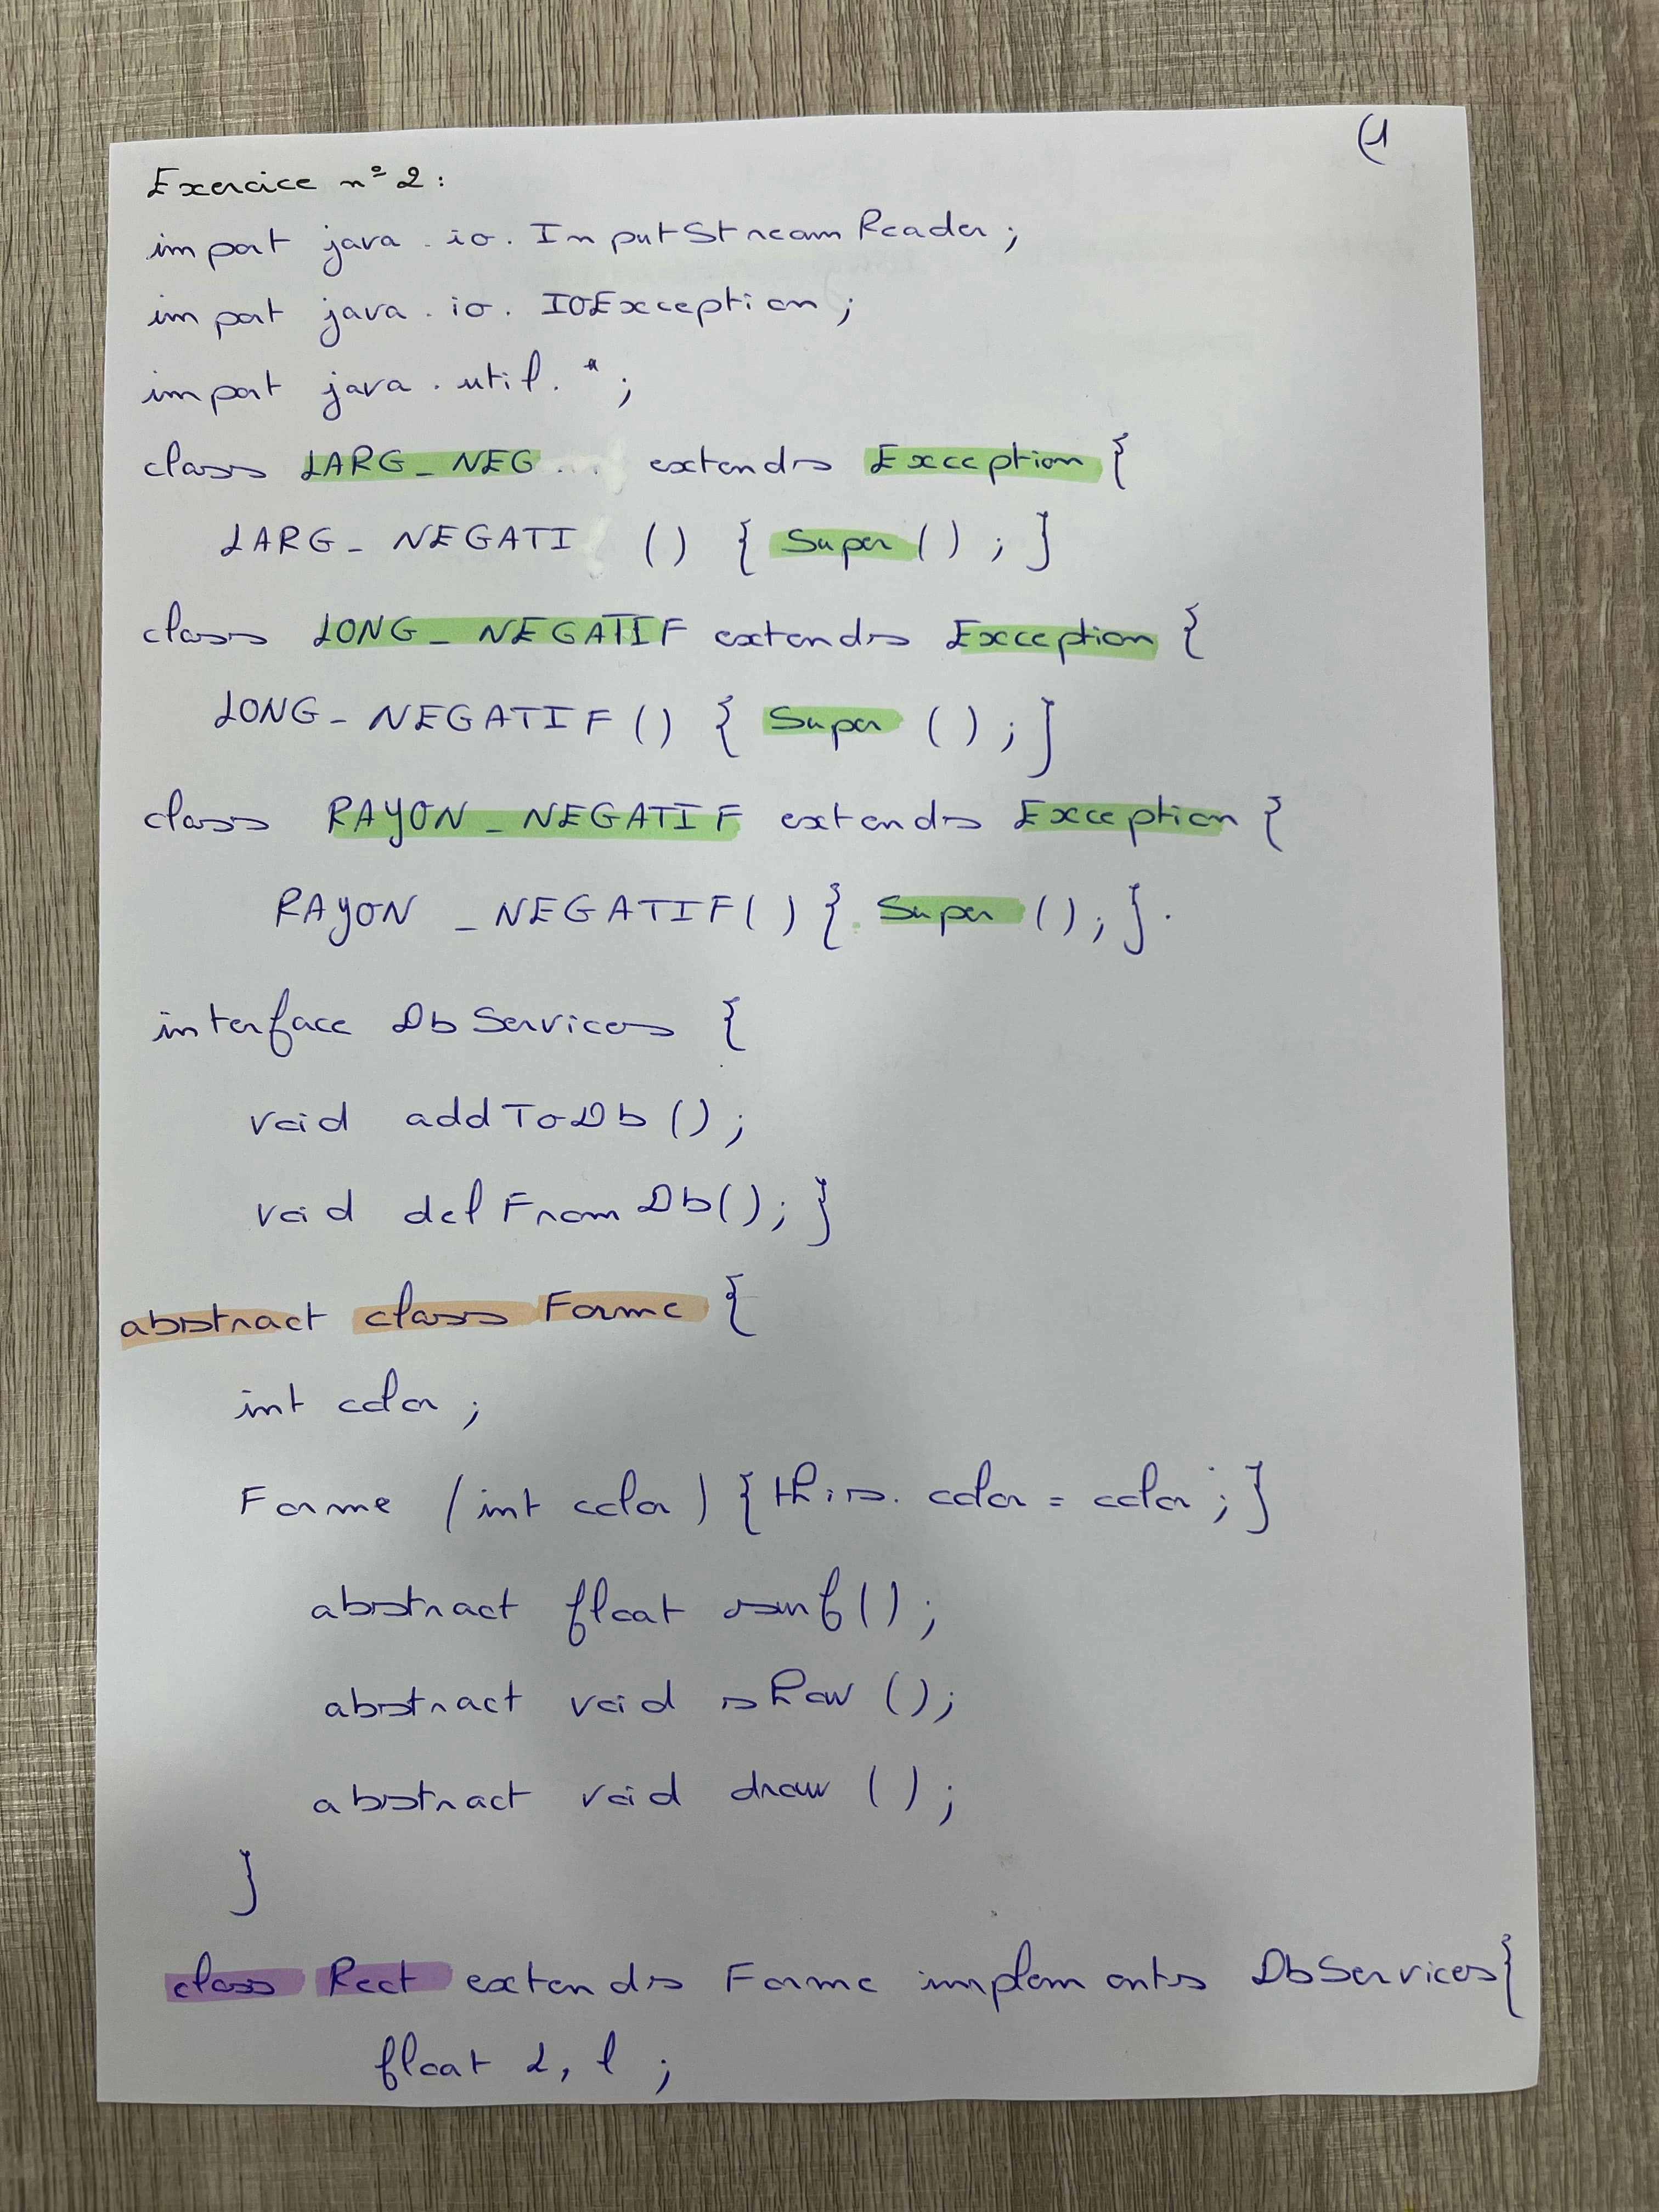 (1
Exercice n° 2:
import java.io.InputStreamReader;
import java.io.IOException;
import java.util.*;
class LARG_NEG extends Exception {
LARG_NEGATI () { Super(); }
class LONG_NEGATIF extends Exception {
LONG_NEGATIF() { Super (); }
class RAYON_NEGATIF extends Exception {
RAYON_NEGATIF() { Super (); }.
interface DbServices {
void addToDb ();
void delFromDb(); }
abstract class Forme {
int color ;
Forme (int color) { this.color = color ; }
abstract float surf();
abstract void show ();
abstract void draw ();
}
class Rect extends Forme implements DbServices{
float L, l ;